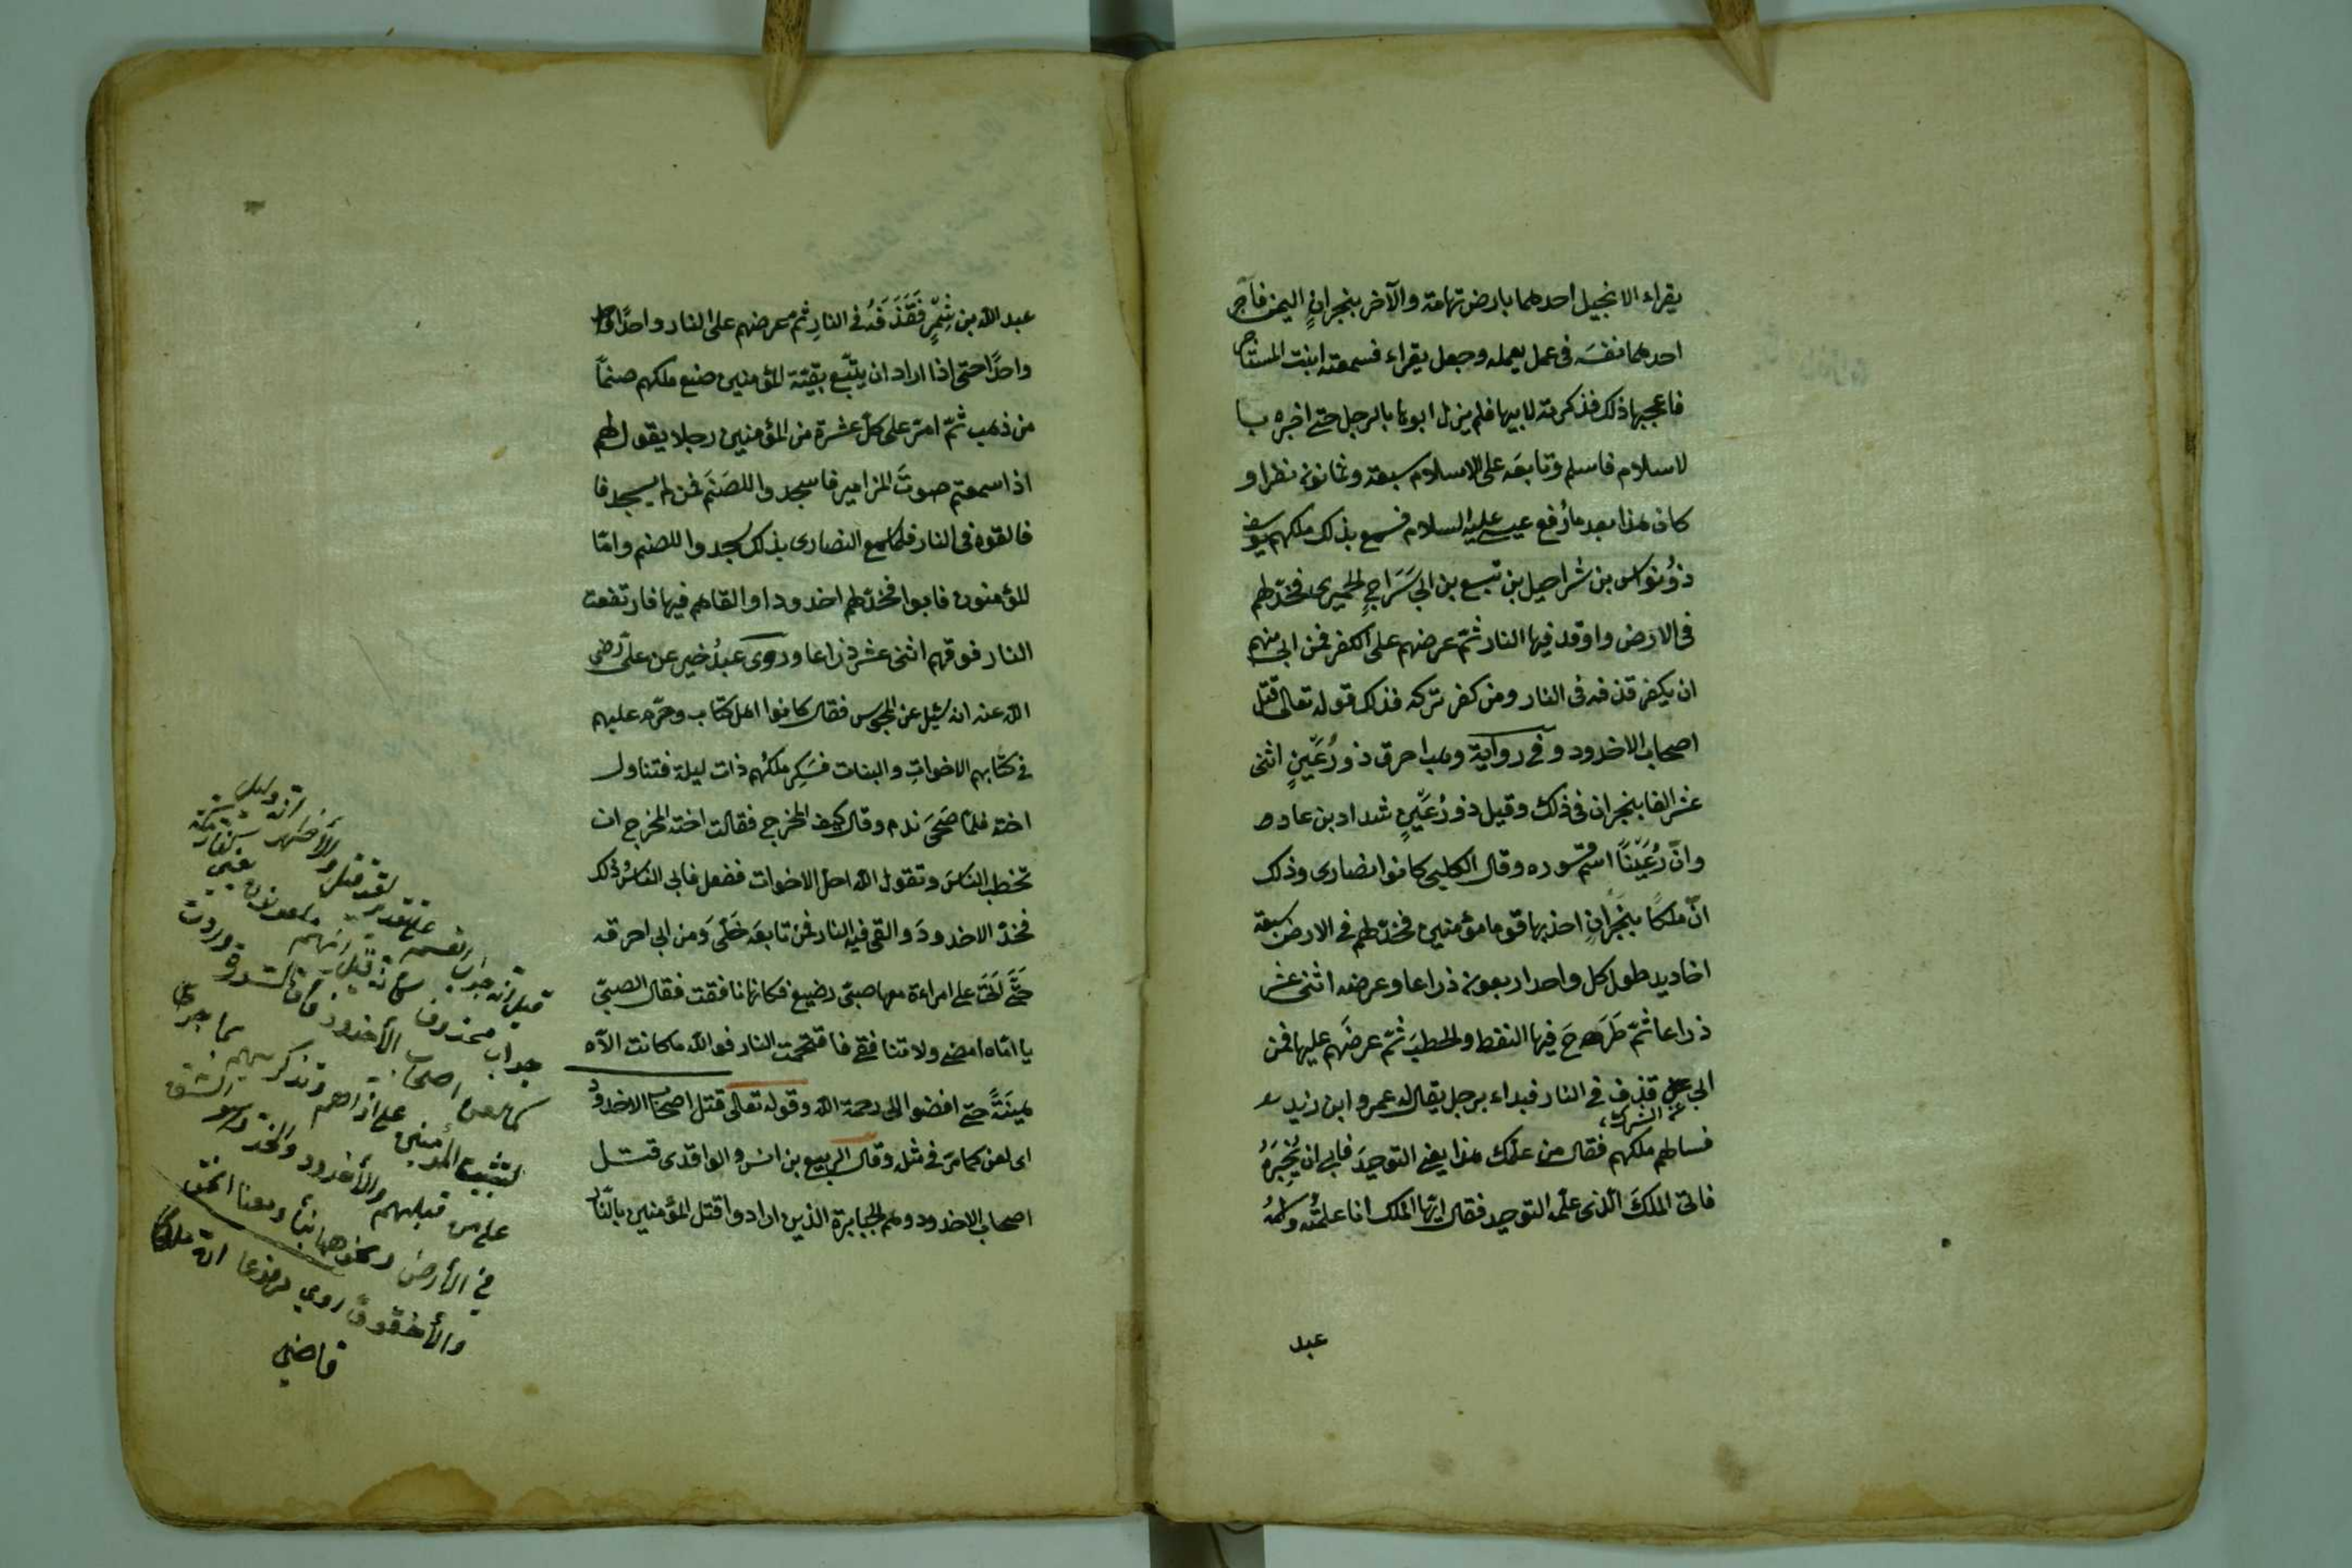 يقراء الانجيل احدهما بارض تهامة والآخر بنجران اليمن فآجر
احدهما نفسَه فى عمل يعمله وجعل يقراء فسمعته ابنت المستأجر
فاعجبها ذلك فذكرته لابيها فلم يزل ابوها بالرجل حتى اخبره با
لاسلام فاسلم وتابعَه على الاسلام سبعة وثمانون نظرا و
كان هذا بعد ما رُفع عيسى عليه السلام فسمع بذلك ملكهم يوسف
ذوُنواس بن شراحيل بن تبع بن ابى سَرَاجٍ الحميرى فخدّ لهم
فى الارض واوقد فيها النار ثمّ عرضهم على الكفر فمن ابى منهم
ان يكفر قذفه فى النار ومن كفر تركه فذلك قوله تعالى قتل
اصحاب الاخدود وفى رواية وهب احرق ذو رُعَيْنٍ اثنى
عشر الفا بنجران فى ذلك وقيل ذو رُعَيْنٍ شداد بن عاد
وانّ رُعَيْنًا اسم قسوره وقال الكلبى كانوا نصارى وذلك
انّ ملكًا بنَجْرَانٍ اخذ بها قوما مؤمنين فخدّ لهم فى الارض سبعة
اخاديد طول كل واحد اربعون ذراعا وعرضه اثنى عشر
ذراعا ثمّ طَرَحَ فيها النفط والحطبَ ثمّ عرضَهم عليها فمن
ابى قذف فى النار فبداء برجل يقال له عمرو ابن زيد
عن الشرك
فسالهم ملكهم فقال من علّمك هذا يعنى التوحيدَ فابى ان يُخْبِرَهُ
فاتى الملكَ الّذى علّمه التوحيد فقال ايّها الملك انا علمتُه واسمُه
عبد
عبد الله بن شِمِّرٍ فَقَذَفَهُ فى النارِ ثم عرضهم على النار واحدًا
واحدًا حتى اذا اراد ان يتّبع بقيّة المؤمنين صنع ملكهم صنمًا
من ذهب ثمّ امر على كلّ عشرة من المؤمنين رجلا يقول لهم
اذا سمعتم صوتَ المزامير فاسجدوا للصَنَم فمن لم يسجد فا
فالقوه فى النار فلما سمع النصارى بذلك سجدوا للصنم وامّا
المؤمنون فابوا فخدّ لهم اخدودا والقاهم فيها فارتفعت
النار فوقهم اثنى عشر ذراعا وروى عبدُ خير عن علىّ رضى
الله عنه انه سُئِل عن المجوس فقال كانوا اهل كتاب وحرّم عليهم
فى كتابهم الاخواتِ والبنات فسَكِر ملكُهم ذات ليلة فتناول
اخته فلمّا صَحَى ندم وقال كيف المخرج فقالت اخته المخرج ان
تخطب الناسَ وتقول الله احلّ الاخوات ففعل فابى الناسُ ذلك
فخدّ الاخدودَ والقى فيه النار فمن تابعَه خَلَّى وَمن ابى احرقه
حتَّى اَتَتْ على امراءة معها صبىّ رضيع فكانها نافقت فقال الصبىّ
يا امّاه امضى ولا تنافقى فاقتحمت النار فوالله ما كانت الاّه
هَيِنَةً حتى افضوا الى رحمة الله وقوله تعالى قتل اصحاب الاخدود
اى لعن كما مرّ فى مثله وقال الربيع بن انس والواقدى قتل
اصحاب الاخدود وهم الجبابرة الذين ارادوا قتل المؤمنين بالنّار
قيل انه جواب القسم على تقدير لقد قتل والأظهر انه دليل
جواب محذوف كانه قيل انهم ملعونون يعنى كفار مكة
كما لعن اصحاب الأخدود فان السورة وردت
لتثبيت المؤمنين على اذاهم وتذكيرهم بما جرى
على من قبلهم والأخدود والخد وهو الشق
فى الأرض ونحوهما بناءً ومعنا الخق
والأخقوق روي مرفوعا ان ملكًا
قاضي